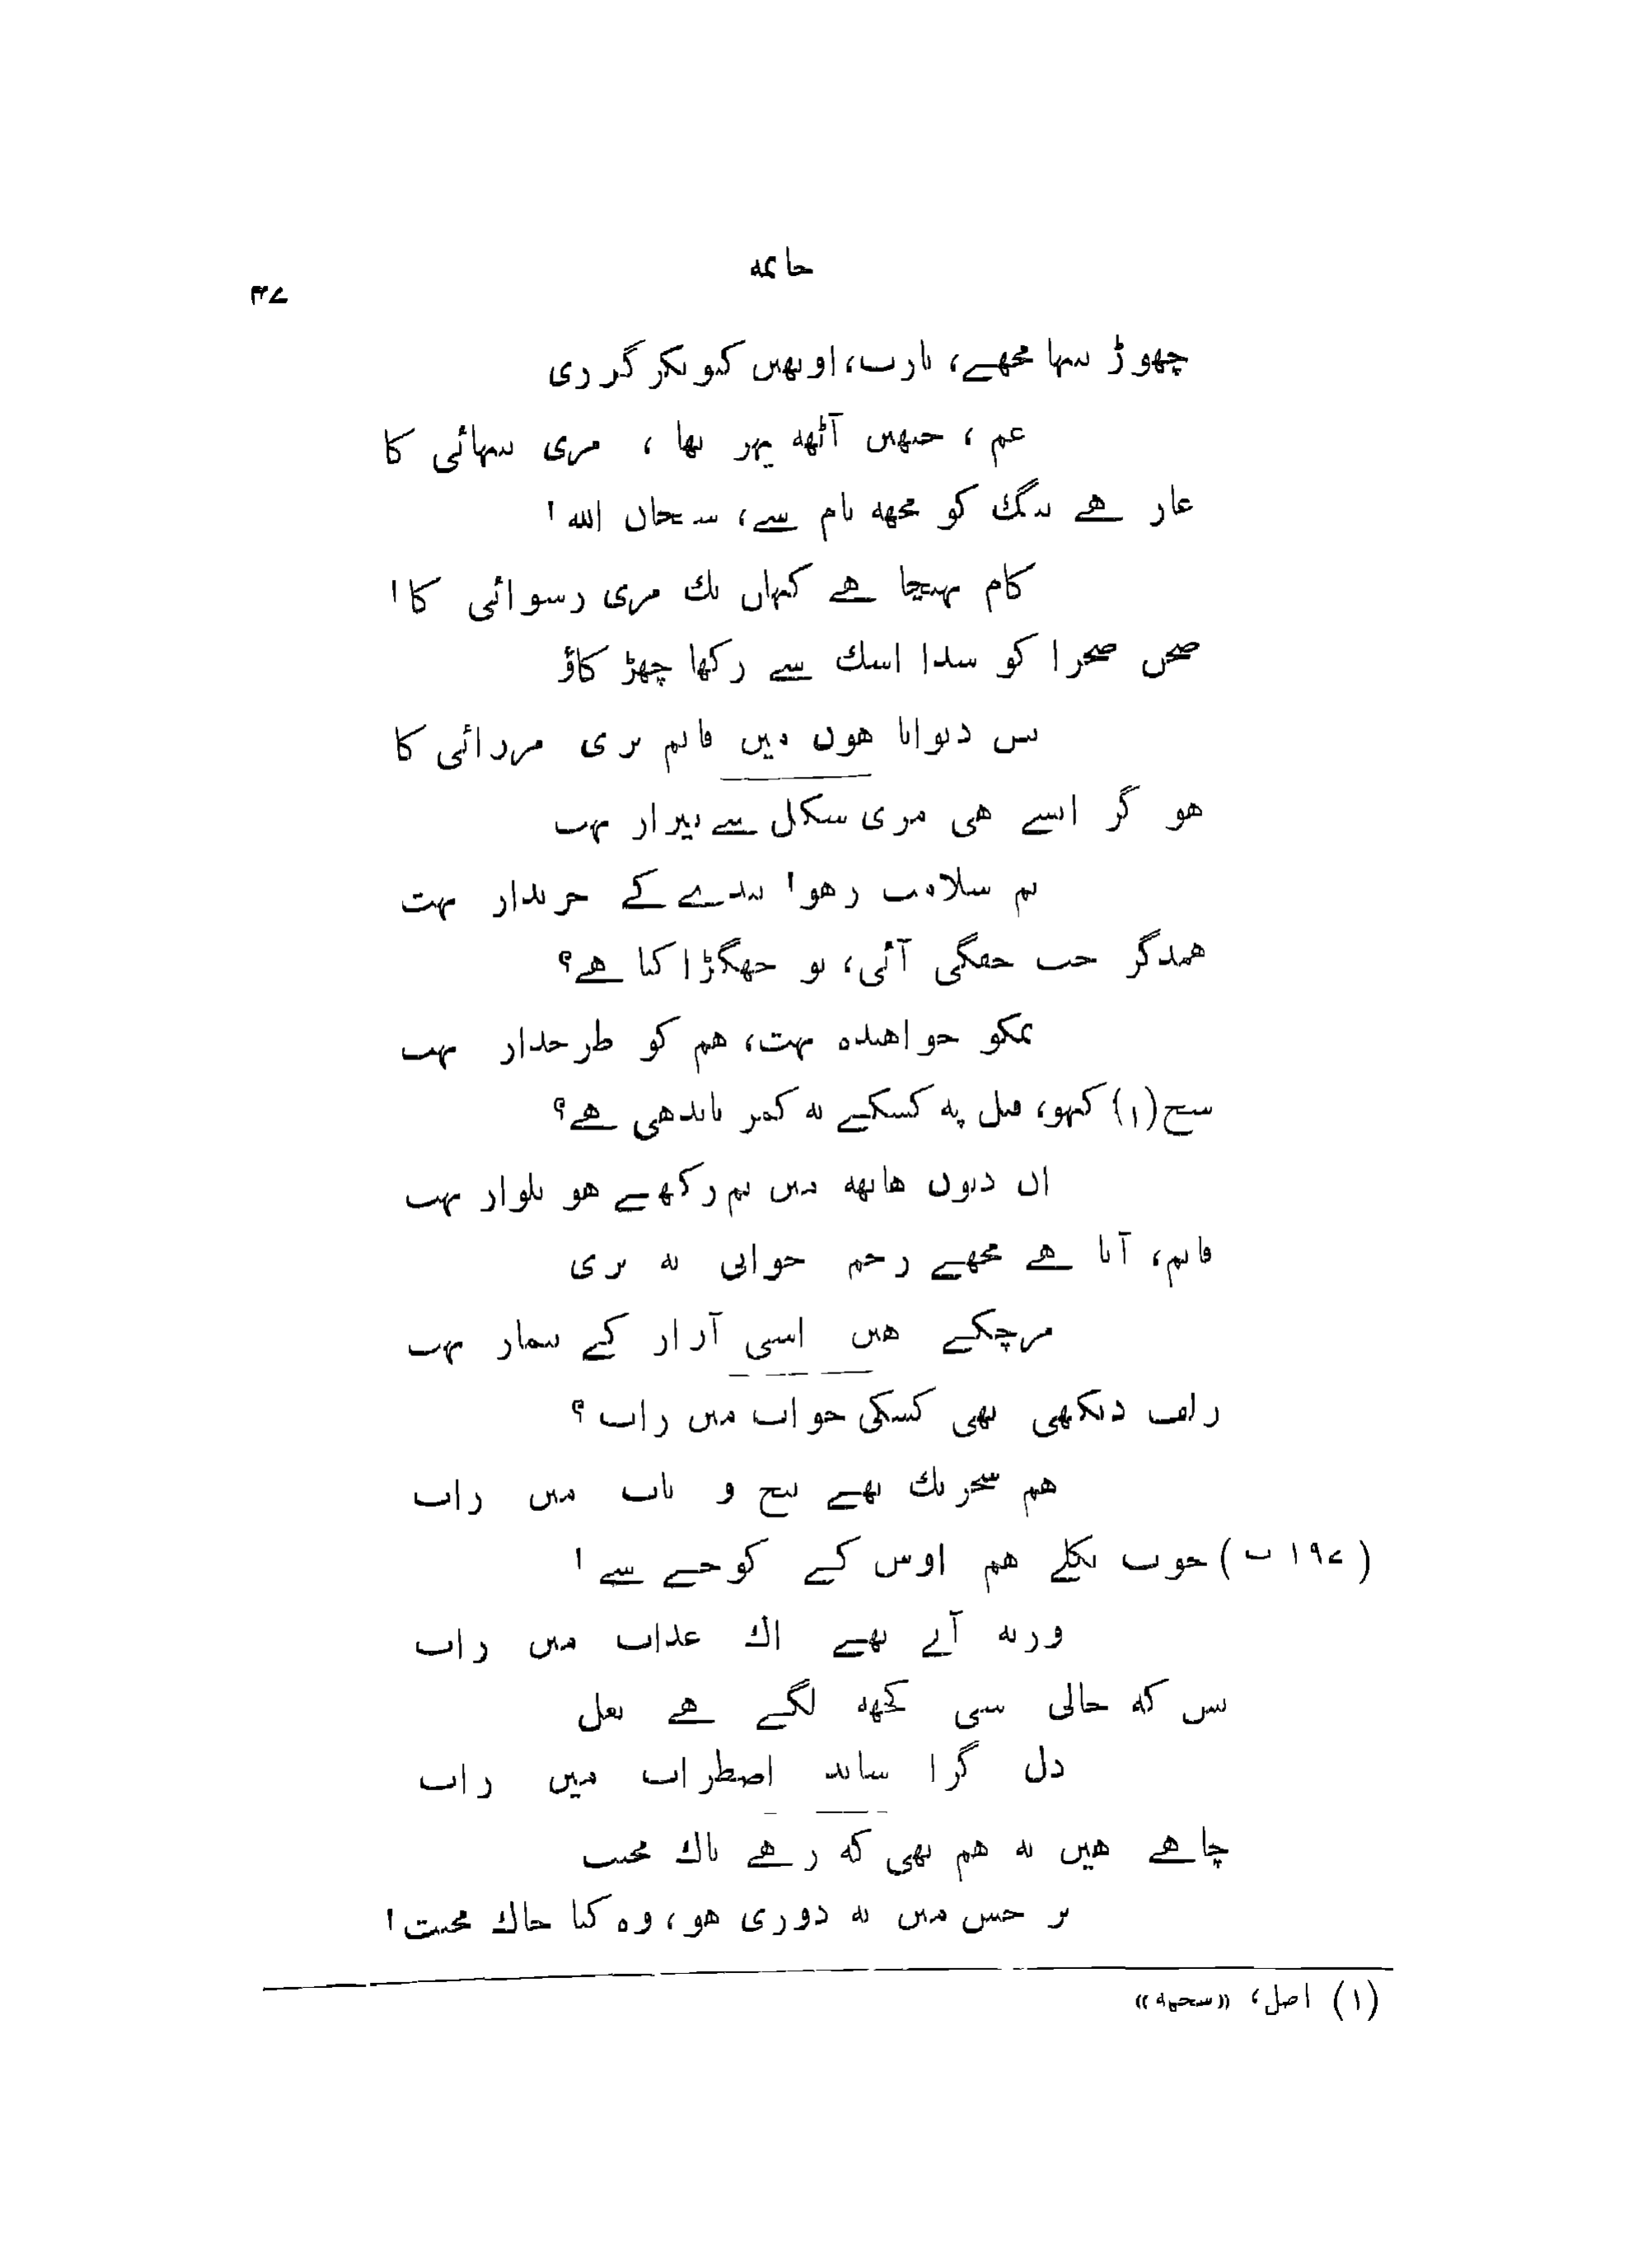 خاتمه
۴۷
چھوڑ تنہا مجھے، یارب، اونھیں کیونکر گزری
غم، جنھیں آٹھه پہر تھا، مری تنہائی کا
عار ھے ننگ کو مجھه نام سے، سبحان اللہ!
کام پہنچا ھے کہاں تك مری رسوائی کا!
صحن صحرا کو سدا اشك سے رکھا چھڑکاؤ
بس دیوانا ھوں میں قائم تری مرزائی کا
ھو گر ایسے ھی مری شکل سے بیزار بہت
تم سلامت رھو! بندے کے خریدار بہت
ھمدگر جب خفگی آئی، تو جھگڑا کیا ھے؟
تمکو خواھندہ بہت، ھم کو طرحدار بہت
سچ(۱) کہو، قتل پہ کسکے یہ کمر باندھی ھے؟
ان دنوں ھاتھه میں تم رکھتے ھو تلوار بہت
قائم، آتا ھے مجھے رحم جوانی په تری
مرچکے ھیں اسی آزار کے بیمار بہت
زلف دیکھی تھی کسکی خواب میں رات؟
ھم سحر تك تھے پیچ و تاب میں رات
(۱۹۷ ب) خوب نکلے ھم اوس کے کوچے سے!
ورنه آئے تھے اك عذاب میں رات
بس که خالی سی کچھه لگے ھے بغل
دل گرا شاید اضطراب میں رات
چاھے ھیں یه ھم بھی که رھے پاك محبت
پر جس میں یه دوری ھو، وہ کیا خاك محبت!
(۱) اصل، «سچهه»